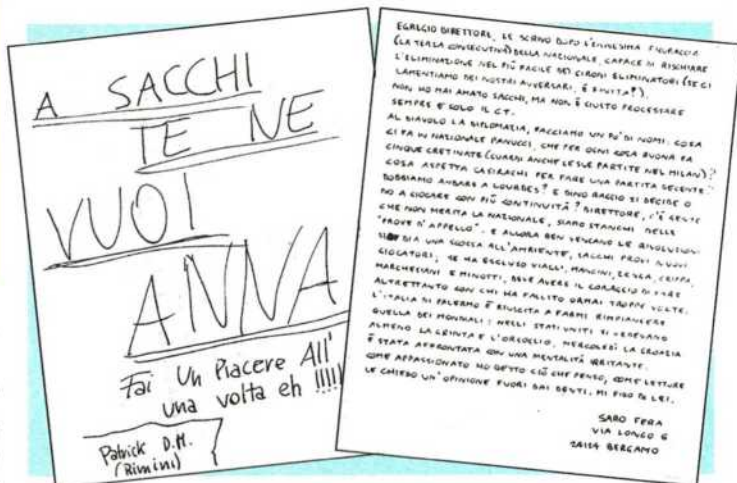 A SACCHI
TE NE
VUOI
ANNA
Fai Un Piacere All'
una volta eh !!!!!
Patrick D.M.
(Rimini)
EGREGIO DIRETTORE, LE SCRIVO DOPO L'ENNESIMA FIGURACCIA
(LA TERZA CONSECUTIVA) DELLA NAZIONALE, CAPACE DI RISCHIARE
L'ELIMINAZIONE NEL PIÙ FACILE DEI GIRONI ELIMINATORI (SE CI
LAMENTIAMO DEI NOSTRI AVVERSARI, È FINITA!).
NON HO MAI AMATO SACCHI, MA NON È GIUSTO PROCESSARE
SEMPRE E SOLO IL CT.
AL DIAVOLO LA DIPLOMAZIA, FACCIAMO UN PO' DI NOMI: COSA
CI FA IN NAZIONALE PANUCCI, CHE PER OGNI COSA BUONA FA
CINQUE CRETINATE (GUARDI ANCHE LE SUE PARTITE NEL MILAN)?
COSA ASPETTA CASIRAGHI PER FARE UNA PARTITA DECENTE?
DOBBIAMO ANDARE A LOURDES? E DINO BAGGIO SI DECIDE O
NO A GIOCARE CON PIÙ CONTINUITÀ? DIRETTORE, C'È GENTE
CHE NON MERITA LA NAZIONALE, SIAMO STANCHI DELLE
"PROVE D'APPELLO". E ALLORA BEN VENGANO LE RIVOLUZIONI
SI DIA UNA SCOSSA ALL'AMBIENTE, SACCHI PROVI NUOVI
GIOCATORI; SE HA ESCLUSO VIALLI, MANCINI, ZENGA, CRIPPA,
MARCHEGIANI E MINOTTI, DEVE AVERE IL CORAGGIO DI FARE
ALTRETTANTO CON CHI HA FALLITO ORMAI TROPPE VOLTE.
L'ITALIA DI PALERMO È RIUSCITA A FARMI RIMPIANGERE
QUELLA DEI MONDIALI: NEGLI STATI UNITI SI VEDEVANO
ALMENO LA GRINTA E L'ORGOGLIO, MERCOLEDÌ LA CROAZIA
È STATA AFFRONTATA CON UNA MENTALITÀ IRRITANTE.
COME APPASSIONATO HO DETTO CIÒ CHE PENSO, COME LETTORE
LE CHIEDO UN'OPINIONE FUORI DAI DENTI. MI FIDO DI LEI.
SARO FERA
VIA LONGO 6
24124 BERGAMO